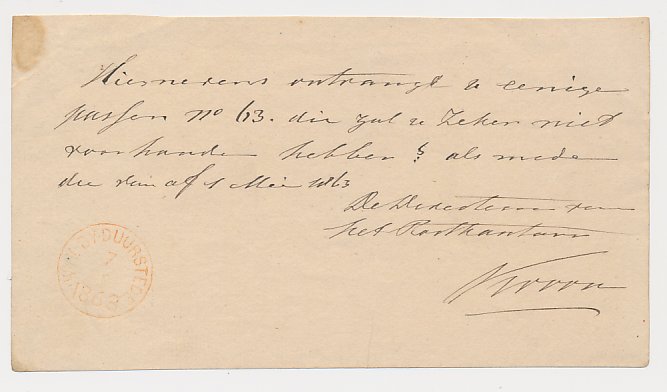 Hiernevens ontvangt u eenige
passen no 63. die zult u zeker niet
voorhanden hebben als mede
die van af 1 Mei 1863
De Directeur van
het Postkantoor
WIJK BIJ DUURSTEDE
7
1863